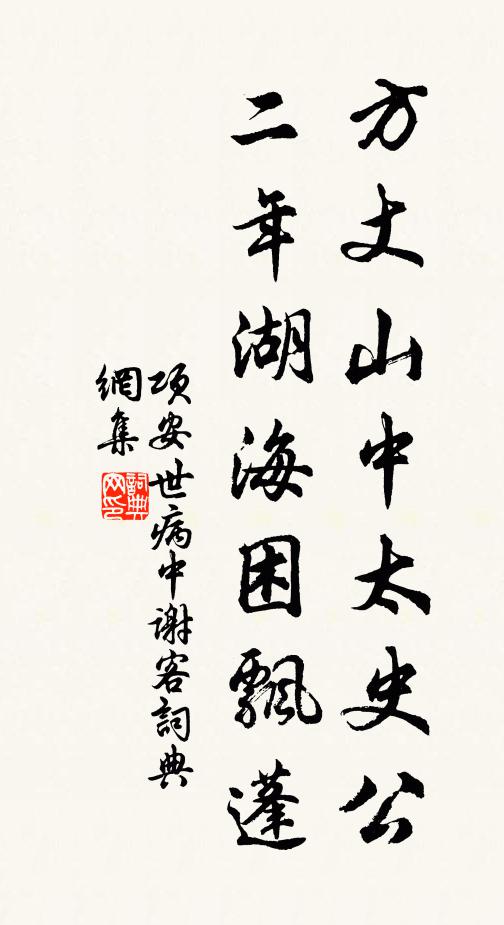 方丈山中太史公
二年湖海困飄蓬
項安世病中謝客詞典
網集
詞典
网印